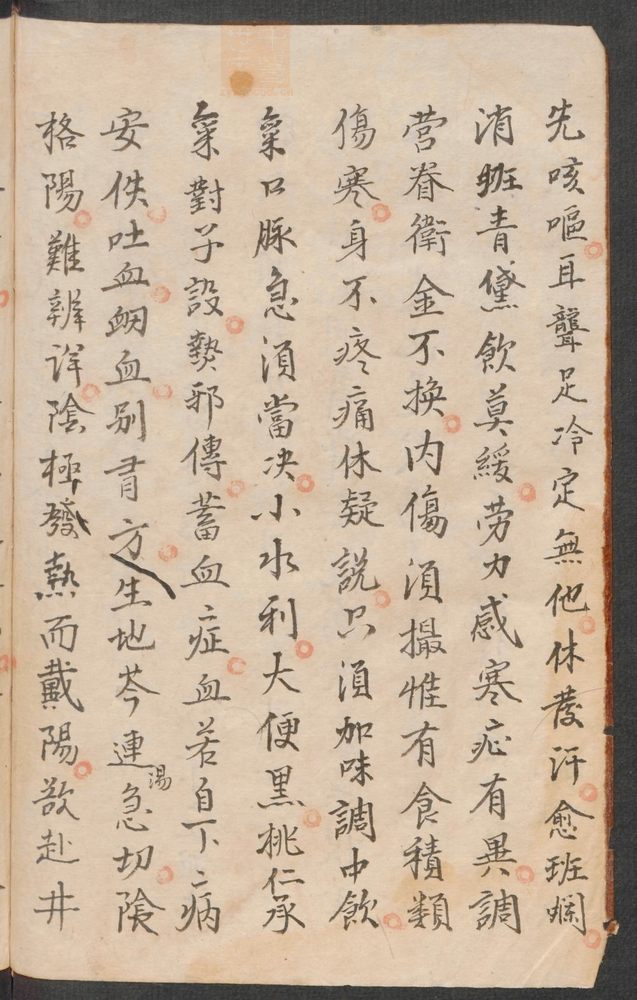 先咳嘔耳聾足冷定無他休發汗愈班斕
消班青黛飲莫緩劳力感寒症有異調
营眷衛金不換内傷湏撮惟有食積類
傷寒身不疼痛休疑說只湏加味調中飲
氣口脉急湏當决小水利大便黒桃仁承
氣對子設熱邪傳蓄血症血若自下病
安佚吐血衂血别有方生地芩連湯急切陰
格陽難辨详陰極發熱而戴陽欲赴井